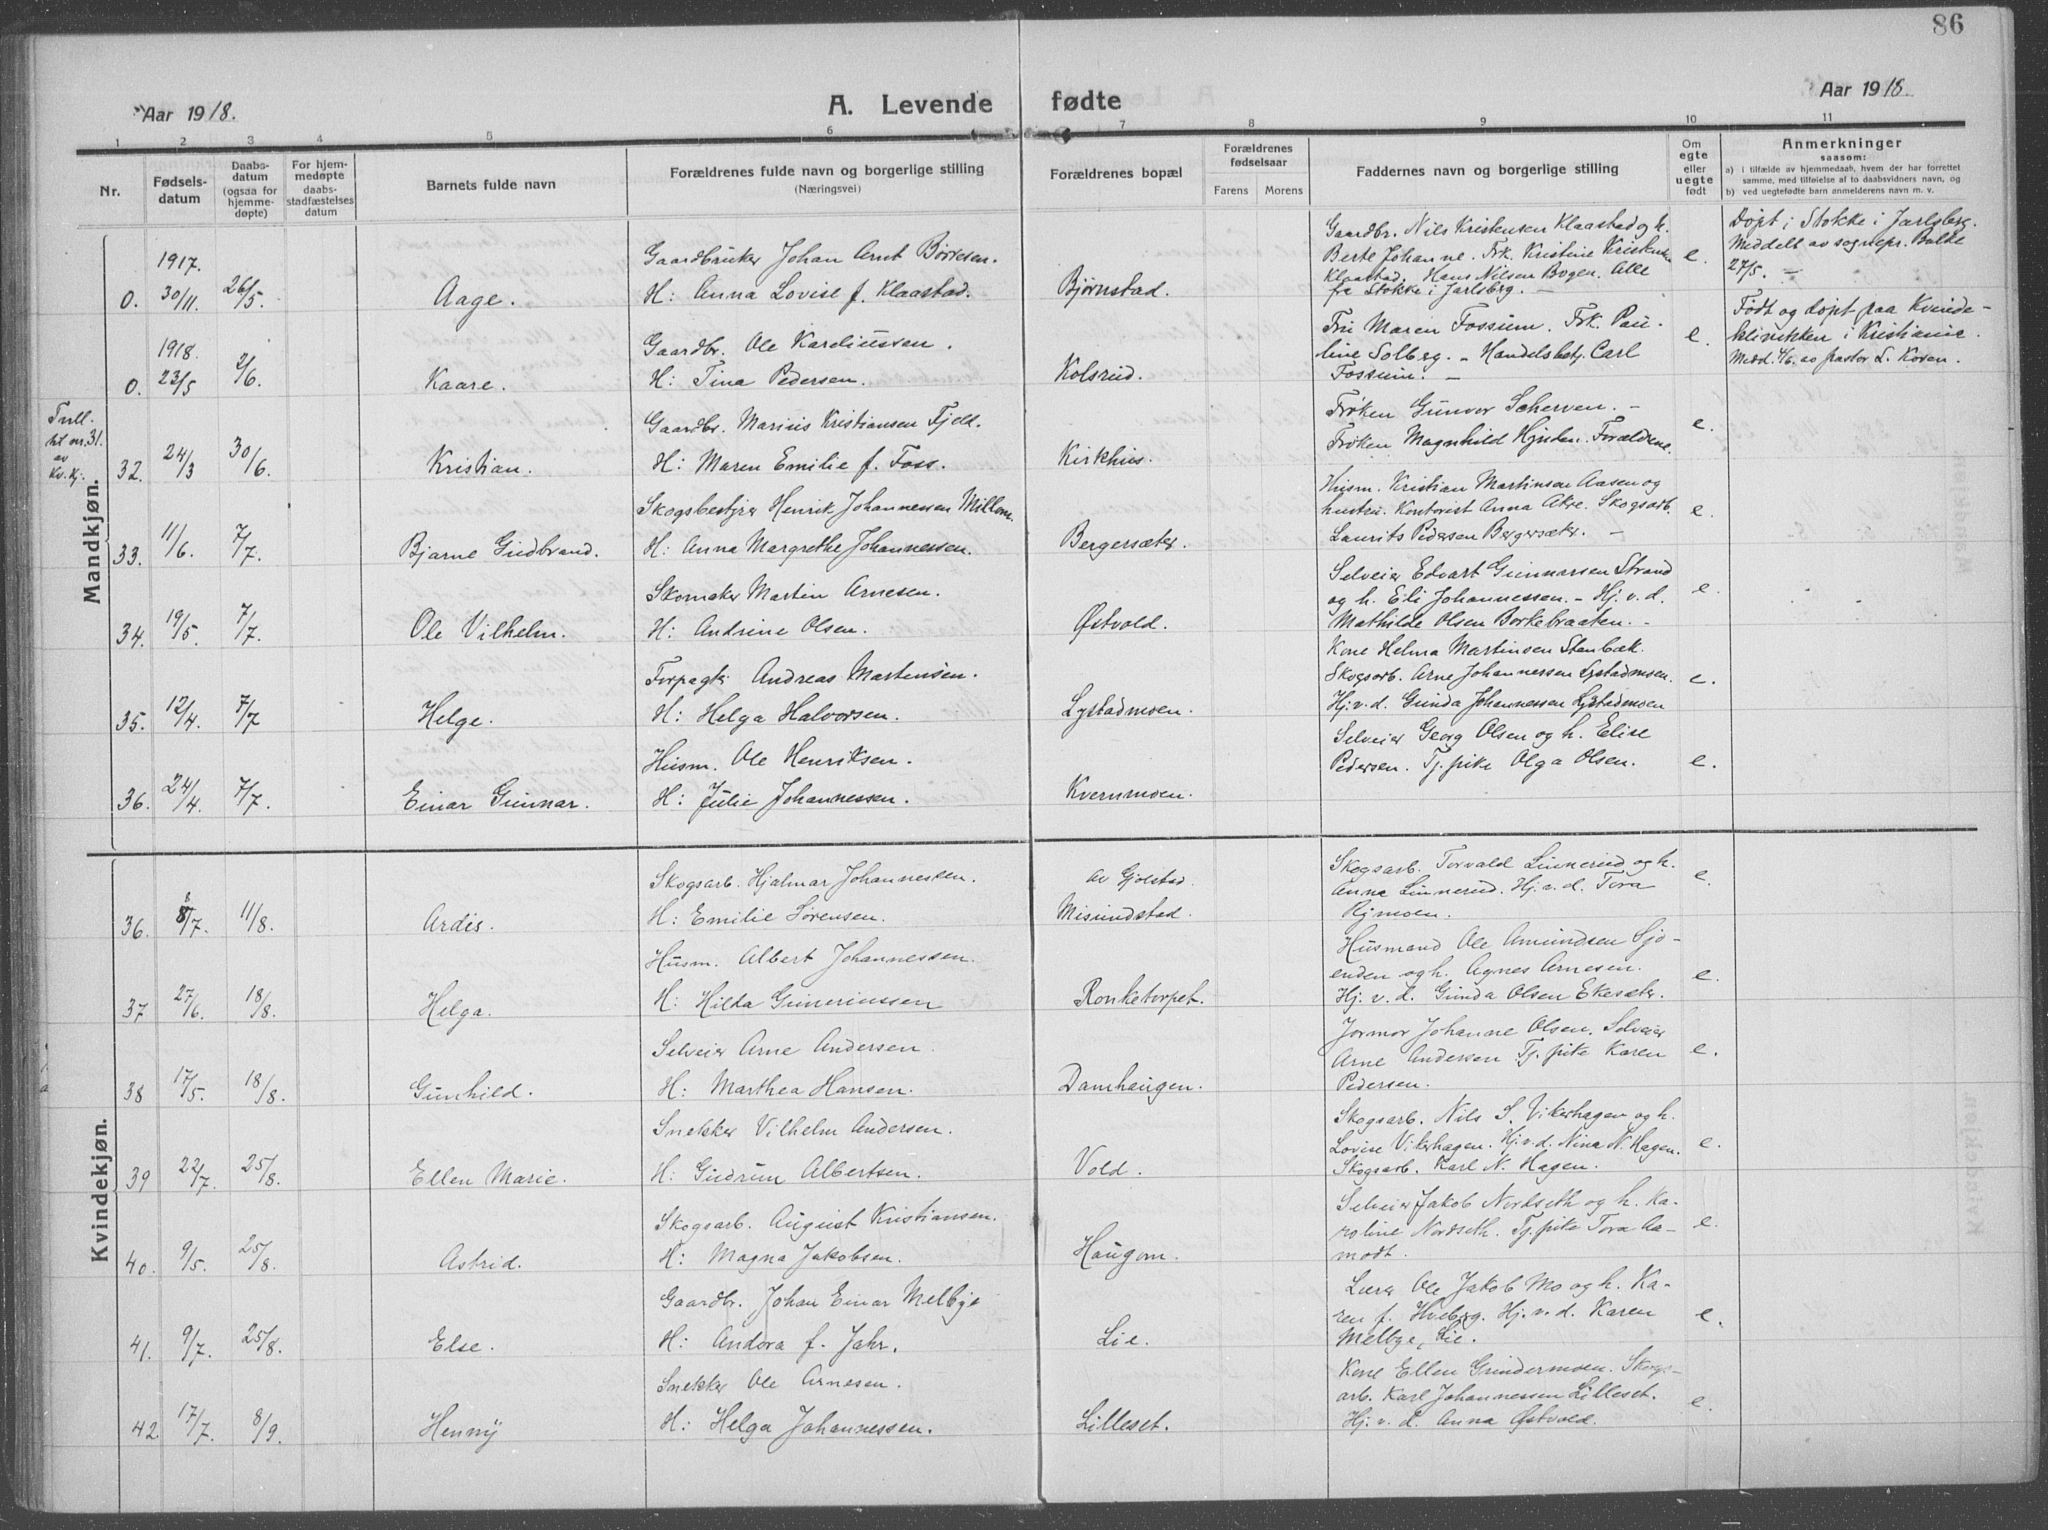 86
Aar 1918.
A. Levende fødte
Aar 1918.
1 2 3 4 5 6 7 8 9 10 11
Nr.
Fødsels-
datum
Daabs-
datum
(ogsaa for
hjemme-
døpte)
For hjem-
medøpte
daabs-
stadfæstelses
datum
Barnets fulde navn
Forældrenes fulde navn og borgerlige stilling
(Næringsvei)
Forældrenes bopæl
Forældrenes
fødselsaar
Farens Morens
Faddernes navn og borgerlige stilling
Om
egte
eller
uegte
født
Anmerkninger
saasom:
a) i tilfælde av hjemmedaab, hvem der har forrettet
samme, med tilføielse af to daabsvidners navn, og
b) ved uegtefødte barn anmelderens navn m. v.
Mandkjøn.
1917.
0. 30/11. 26/5 Aage.
Gaardbruker Johan Arnt Børresen.
H: Anna Lovise f. Klaastad.
Bjørnstad.
Gaardbr. Nils Kristensen Klaastad og h.
Berte Johanne. Frk. Kristine Kristensen
Klaastad. Hans Nilsen Bogen. Alle
fra Stokke i Jarlsberg. —
e.
Døpt i Stokke i Jarlsberg.
Meddelt av sognepr. Balke
27/5. —
1918.
0. 23/5 2/6. Kaare.
Gaardbr. Ole Kardiussen.
H: Tina Pedersen.
Kolsrud.
Fru Maren Fossum. Frk. Pau-
line Solberg. — Handelsbetj. Carl
Fossum. —
e.
Født og døpt paa Kvinde-
klinikken i Kristiania.
Medd. 4/6. av pastor L. Koren.
32. 24/3 30/6. Kristian.
Gaardbr. Marius Kristiansen Fjeld.
H: Maren Emilie f. Foss.
Kirkhus.
Frøken Gunvor Scherven. —
Frøken Magnhild Hjnden. Forældrene.
e.
33. 11/6. 7/7. Bjarne Gudbrand.
Skogsbestyrer Henrik Johannessen Millom.
H: Anna Margrethe Johannessen.
Bergersæter.
Husm. Kristian Martinsen Aasen og
hustru. Kontorist Anna Akre. Skogsarb.
Laurits Pedersen Bergersæter. —
e.
34. 19/5. 7/7. Ole Vilhelm.
Skomaker Martin Arnesen.
H: Andrine Olsen.
Østvold.
Selveier Edvart Gunnarsen Strand
og h. Eli Johannessen. — Hj. v. d.
Mathilde Olsen Borkebraaten. —
e.
35. 12/4. 7/7 Helge.
Forpagter Andreas Martensen.
H: Helga Halvorsen.
Lystadmoen.
Kone Helma Martinsen Stenbæk.
Skogsarb. Arne Johannessen Lystadmoen.
Hj. v. d. Gunda Johannessen Lystadmoen
e.
36. 24/4. 7/7. Einar Gunnar.
Husm. Ole Henriksen.
H: Julie Johannessen.
Kvernmoen.
Selveier Georg Olsen og h. Elise
Pedersen. Tj. pike Olga Olsen.
e.
Kvindekjøn.
36. 8/7. 11/8. Ardis.
Skogsarb. Hjalmar Johannessen.
H: Emilie Sørensen.
av Gjølstad.
Misundstad.
Skogsarb. Torvald Linnerud og h.
Anna Linnerud. Hj. v. d. Tora
Rymoen.
e.
37 27/6. 18/8. Helga.
Husm. Albert Johannessen.
H: Hilda Guneriussen
Ronketorpet.
Husmand Ole Amundsen Sjo-
enden og h. Agnes Arnesen.
Hj. v. d. Gunda Olsen Ekesæter.
e.
38 17/5. 18/8. Gunhild.
Selveier Arne Andersen.
H: Marthea Hansen.
Damhaugen.
Jormor Johanne Olsen. Selveier
Arne Andersen Tj. pike Karen
Pedersen.
e.
39 22/7. 25/8. Ellen Marie.
Snekker Vilhelm Andersen.
H: Gudrun Albertsen.
Vold.
Skogsarb. Nils S. Vikerhagen og h.
Lovise Vikerhagen. Hj. v. d. Nina N. Hagen.
Skogsarb. Karl N. Hagen.
e.
40. 9/5. 25/8. Astrid.
Skogsarb. August Kristiansen.
H: Magna Jakobsen.
Haugom.
Selveier Jakob Nordseth og h. Ka-
roline Nordseth. Tj. pike Tora Aa-
modt.
e.
41. 9/7. 25/8. Else.
Gaardbr. Johan Einar Melbye
H: Andora f. Jahr.
Lie.
Lærer Ole Jakob Mo og h. Ka-
ren f. Hveberg. Hj. v. d. Karen
Melbye, Lie.
e.
42 17/7. 8/9. Henny
Snekker Ole Arnesen.
H: Helga Johannessen.
Lilleset.
Kone Ellen Grindermoen. Skogs-
arb. Karl Johannessen Lilleset.
Hj. v. d. Anna Østvold.
e.